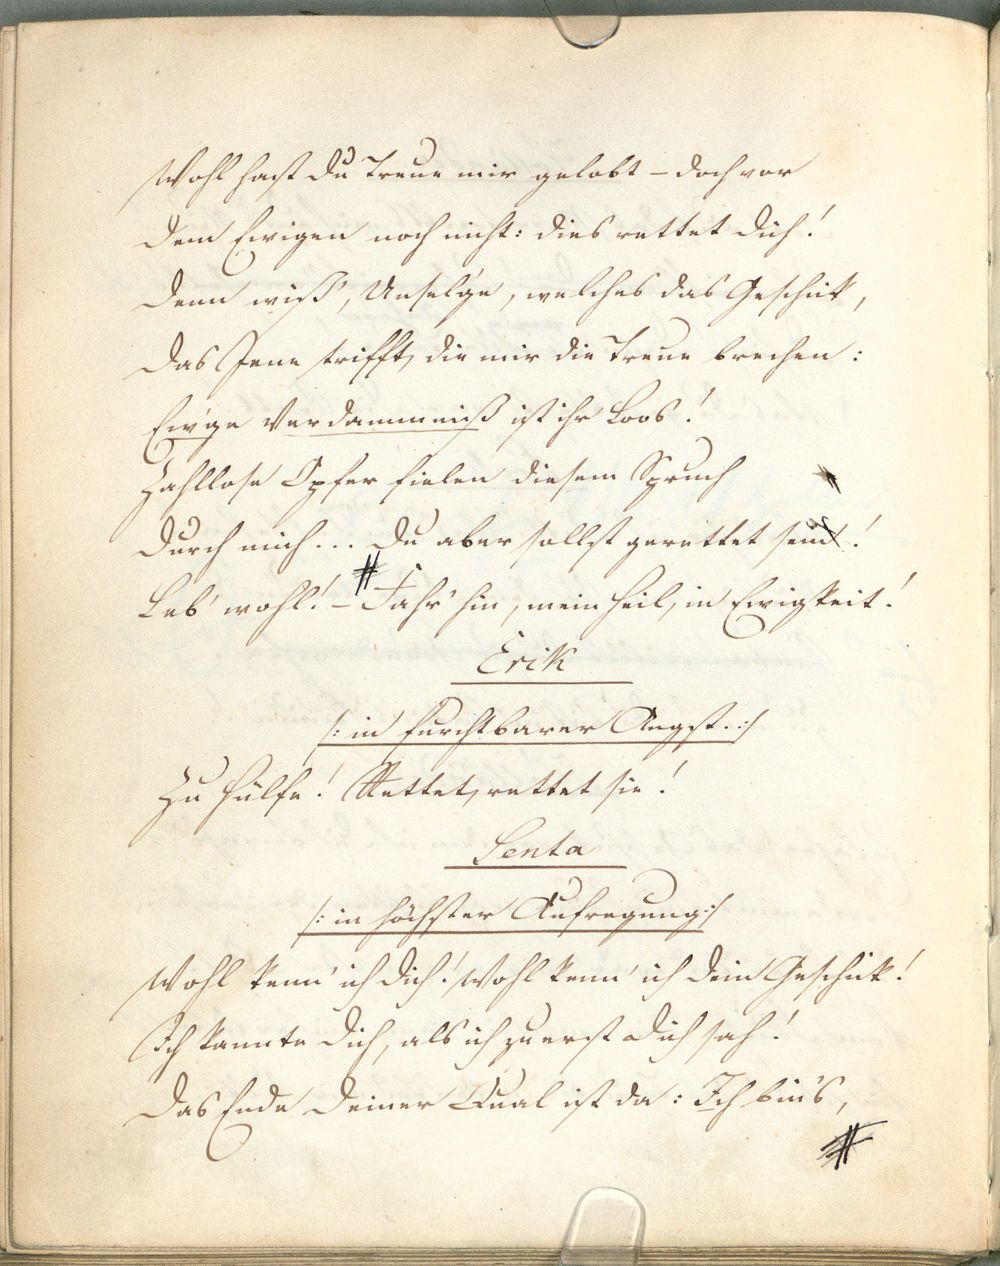 Wohl hast Du Treue mir gelobt – doch vor
Dem Ewigen noch nicht: dies rettet Dich!
Denn wiß', Unsel'ge, welches das Geschick,
Das Jene trifft, die mir die Treue brechen:
Ew'ge Verdammniß ist ihr Loos!
Zahllose Opfer fielen diesem Spruch
Durch mich... Du aber sollst gerettet sein!
Leb' wohl! – Fahr' hin, mein Heil, in Ewigkeit!
Erik
/: in furchtbarer Angst. :/
Zu Hülfe! Rettet, rettet sie!
Senta
/: in höchster Aufregung :/
Wohl kenn' ich Dich! Wohl kenn' ich Dein Geschick!
Ich kannte Dich, als ich zuerst Dich sah!
Das Ende Deiner Qual ist da: Ich bin's,